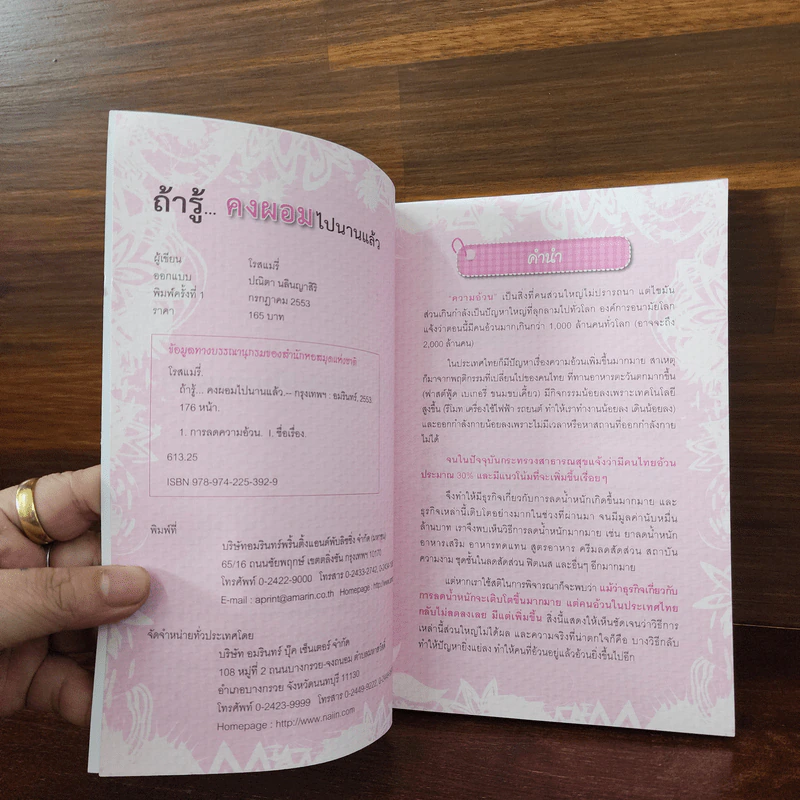 ถ้ารู้... คงผอมไปนานแล้ว
ผู้เขียน โรสแมรี่
ออกแบบ ปณิตา นลินญาสิริ
พิมพ์ครั้งที่ 1 กรกฎาคม 2553
ราคา 165 บาท
ข้อมูลทางบรรณานุกรมของสำนักหอสมุดแห่งชาติ
โรสแมรี่.
ถ้ารู้... คงผอมไปนานแล้ว.-- กรุงเทพฯ : อมรินทร์, 2553
176 หน้า.
1. การลดความอ้วน. I. ชื่อเรื่อง.
613.25
ISBN 978-974-225-392-9
พิมพ์ที่
บริษัทอมรินทร์พริ้นติ้งแอนด์พับลิชชิ่ง จำกัด
65/16 ถนนชัยพฤกษ์ เขตตลิ่งชัน กรุงเทพฯ 10170
โทรศัพท์ 0-2422-9000 โทรสาร 0-2433-2742,
E-mail : aprint@amarin.co.th Homepage :
จัดจำหน่ายทั่วประเทศโดย
บริษัท อมรินทร์ บุ๊ค เซ็นเตอร์ จำกัด
108 หมู่ที่ 2 ถนนบางกรวย-จงถนอม
อำเภอบางกรวย จังหวัดนนทบุรี 11130
โทรศัพท์ 0-2423-9999 โทรสาร
Homepage : http://www.naiin.com
คำนำ
"ความอ้วน" เป็นสิ่งที่คนส่วนใหญ่ไม่ปรารถนา แต่ไขมัน
ส่วนเกินกำลังเป็นปัญหาใหญ่ที่ลุกลามไปทั่วโลก องค์การอนามัยโลก
แจ้งว่าตอนนี้มีคนอ้วนมากเกินกว่า 1,000 ล้านคนทั่วโลก (อาจจะถึง
2,000 ล้านคน)
ในประเทศไทยก็มีปัญหาเรื่องความอ้วนเพิ่มขึ้นมากมาย สาเหตุ
ก็มาจากพฤติกรรมที่เปลี่ยนไปของคนไทย ที่ทานอาหารตะวันตกมากขึ้น
(ฟาสต์ฟู้ด เบเกอรี่ ขนมขบเคี้ยว) มีกิจกรรมน้อยลงเพราะเทคโนโลยี
สูงขึ้น (รีโมท เครื่องใช้ไฟฟ้า รถยนต์ ทำให้เราทำงานน้อยลง เดินน้อยลง)
และออกกำลังกายน้อยลงเพราะไม่มีเวลาหรือหาสถานที่ออกกำลังกาย
ไม่ได้
จนในปัจจุบันกระทรวงสาธารณสุขแจ้งว่ามีคนไทยอ้วน
ประมาณ 30% และมีแนวโน้มที่จะเพิ่มขึ้นเรื่อยๆ
จึงทำให้มีธุรกิจเกี่ยวกับการลดน้ำหนักเกิดขึ้นมากมาย และ
ธุรกิจเหล่านี้เติบโตอย่างมากในช่วงที่ผ่านมา จนมีมูลค่านับหมื่น
ล้านบาท เราจึงพบเห็นวิธีการลดน้ำหนักมากมาย เช่น ยาลดน้ำหนัก
อาหารเสริม อาหารทดแทน สูตรอาหาร ครีมลดสัดส่วน สถาบัน
ความงาม ชุดชั้นในลดสัดส่วน ฟิตเนส และอื่นๆ อีกมากมาย
แต่หากเราใช้สติในการพิจารณาก็จะพบว่า แม้ว่าธุรกิจเกี่ยวกับ
การลดน้ำหนักจะเติบโตขึ้นมากมาย แต่คนอ้วนในประเทศไทย
กลับไม่ลดลงเลย มีแต่เพิ่มขึ้น สิ่งนี้แสดงให้เห็นชัดเจนว่าวิธีการ
เหล่านี้ส่วนใหญ่ไม่ได้ผล และความจริงที่น่าตกใจก็คือ บางวิธีกลับ
ทำให้ปัญหายิ่งแย่ลง ทำให้คนที่อ้วนอยู่แล้วอ้วนยิ่งขึ้นไปอีก